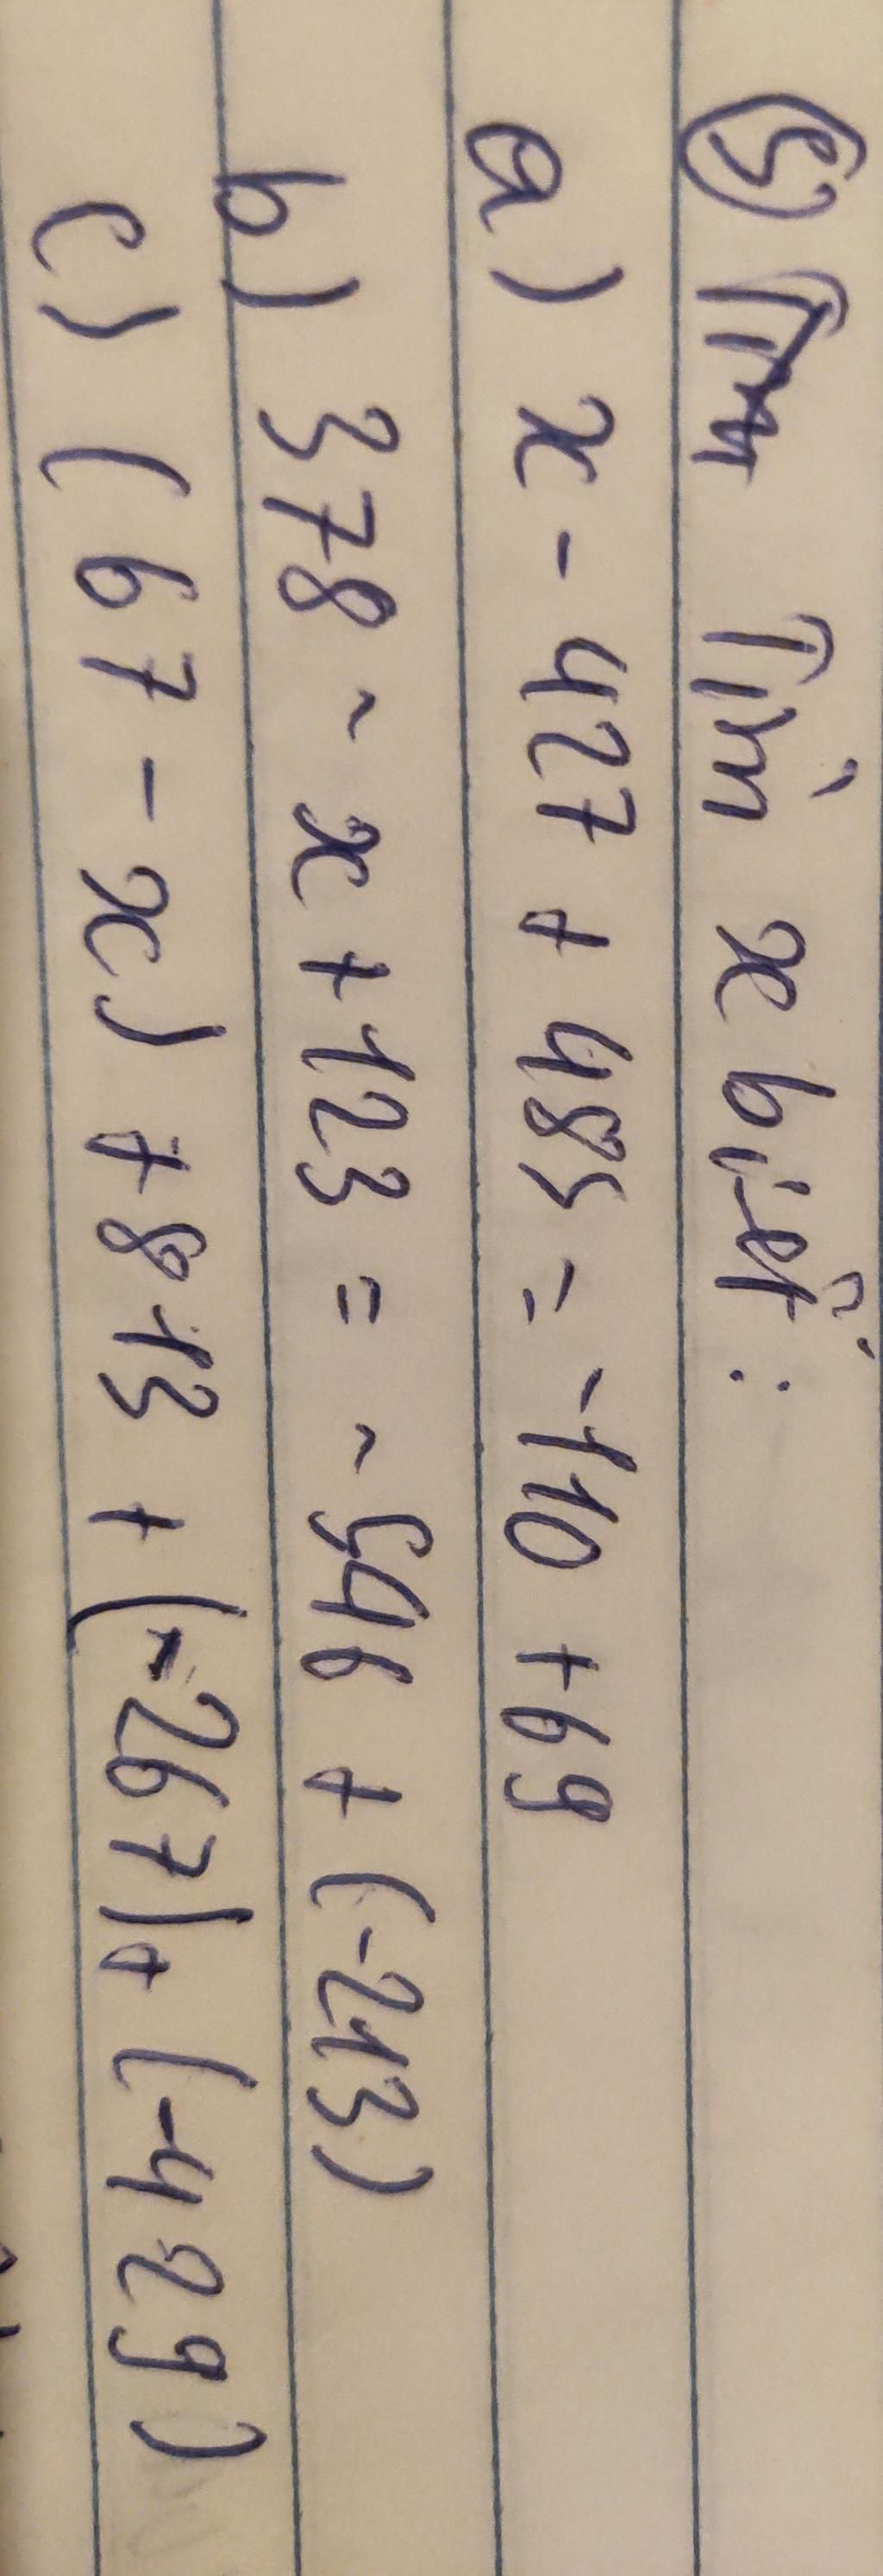 5) Tìm x biết:
a) x - 427 + 485 = -110 + 69
b) 378 - x + 123 = -546 + (-213)
c) (67 - x) + 813 + (-267) + (-429)